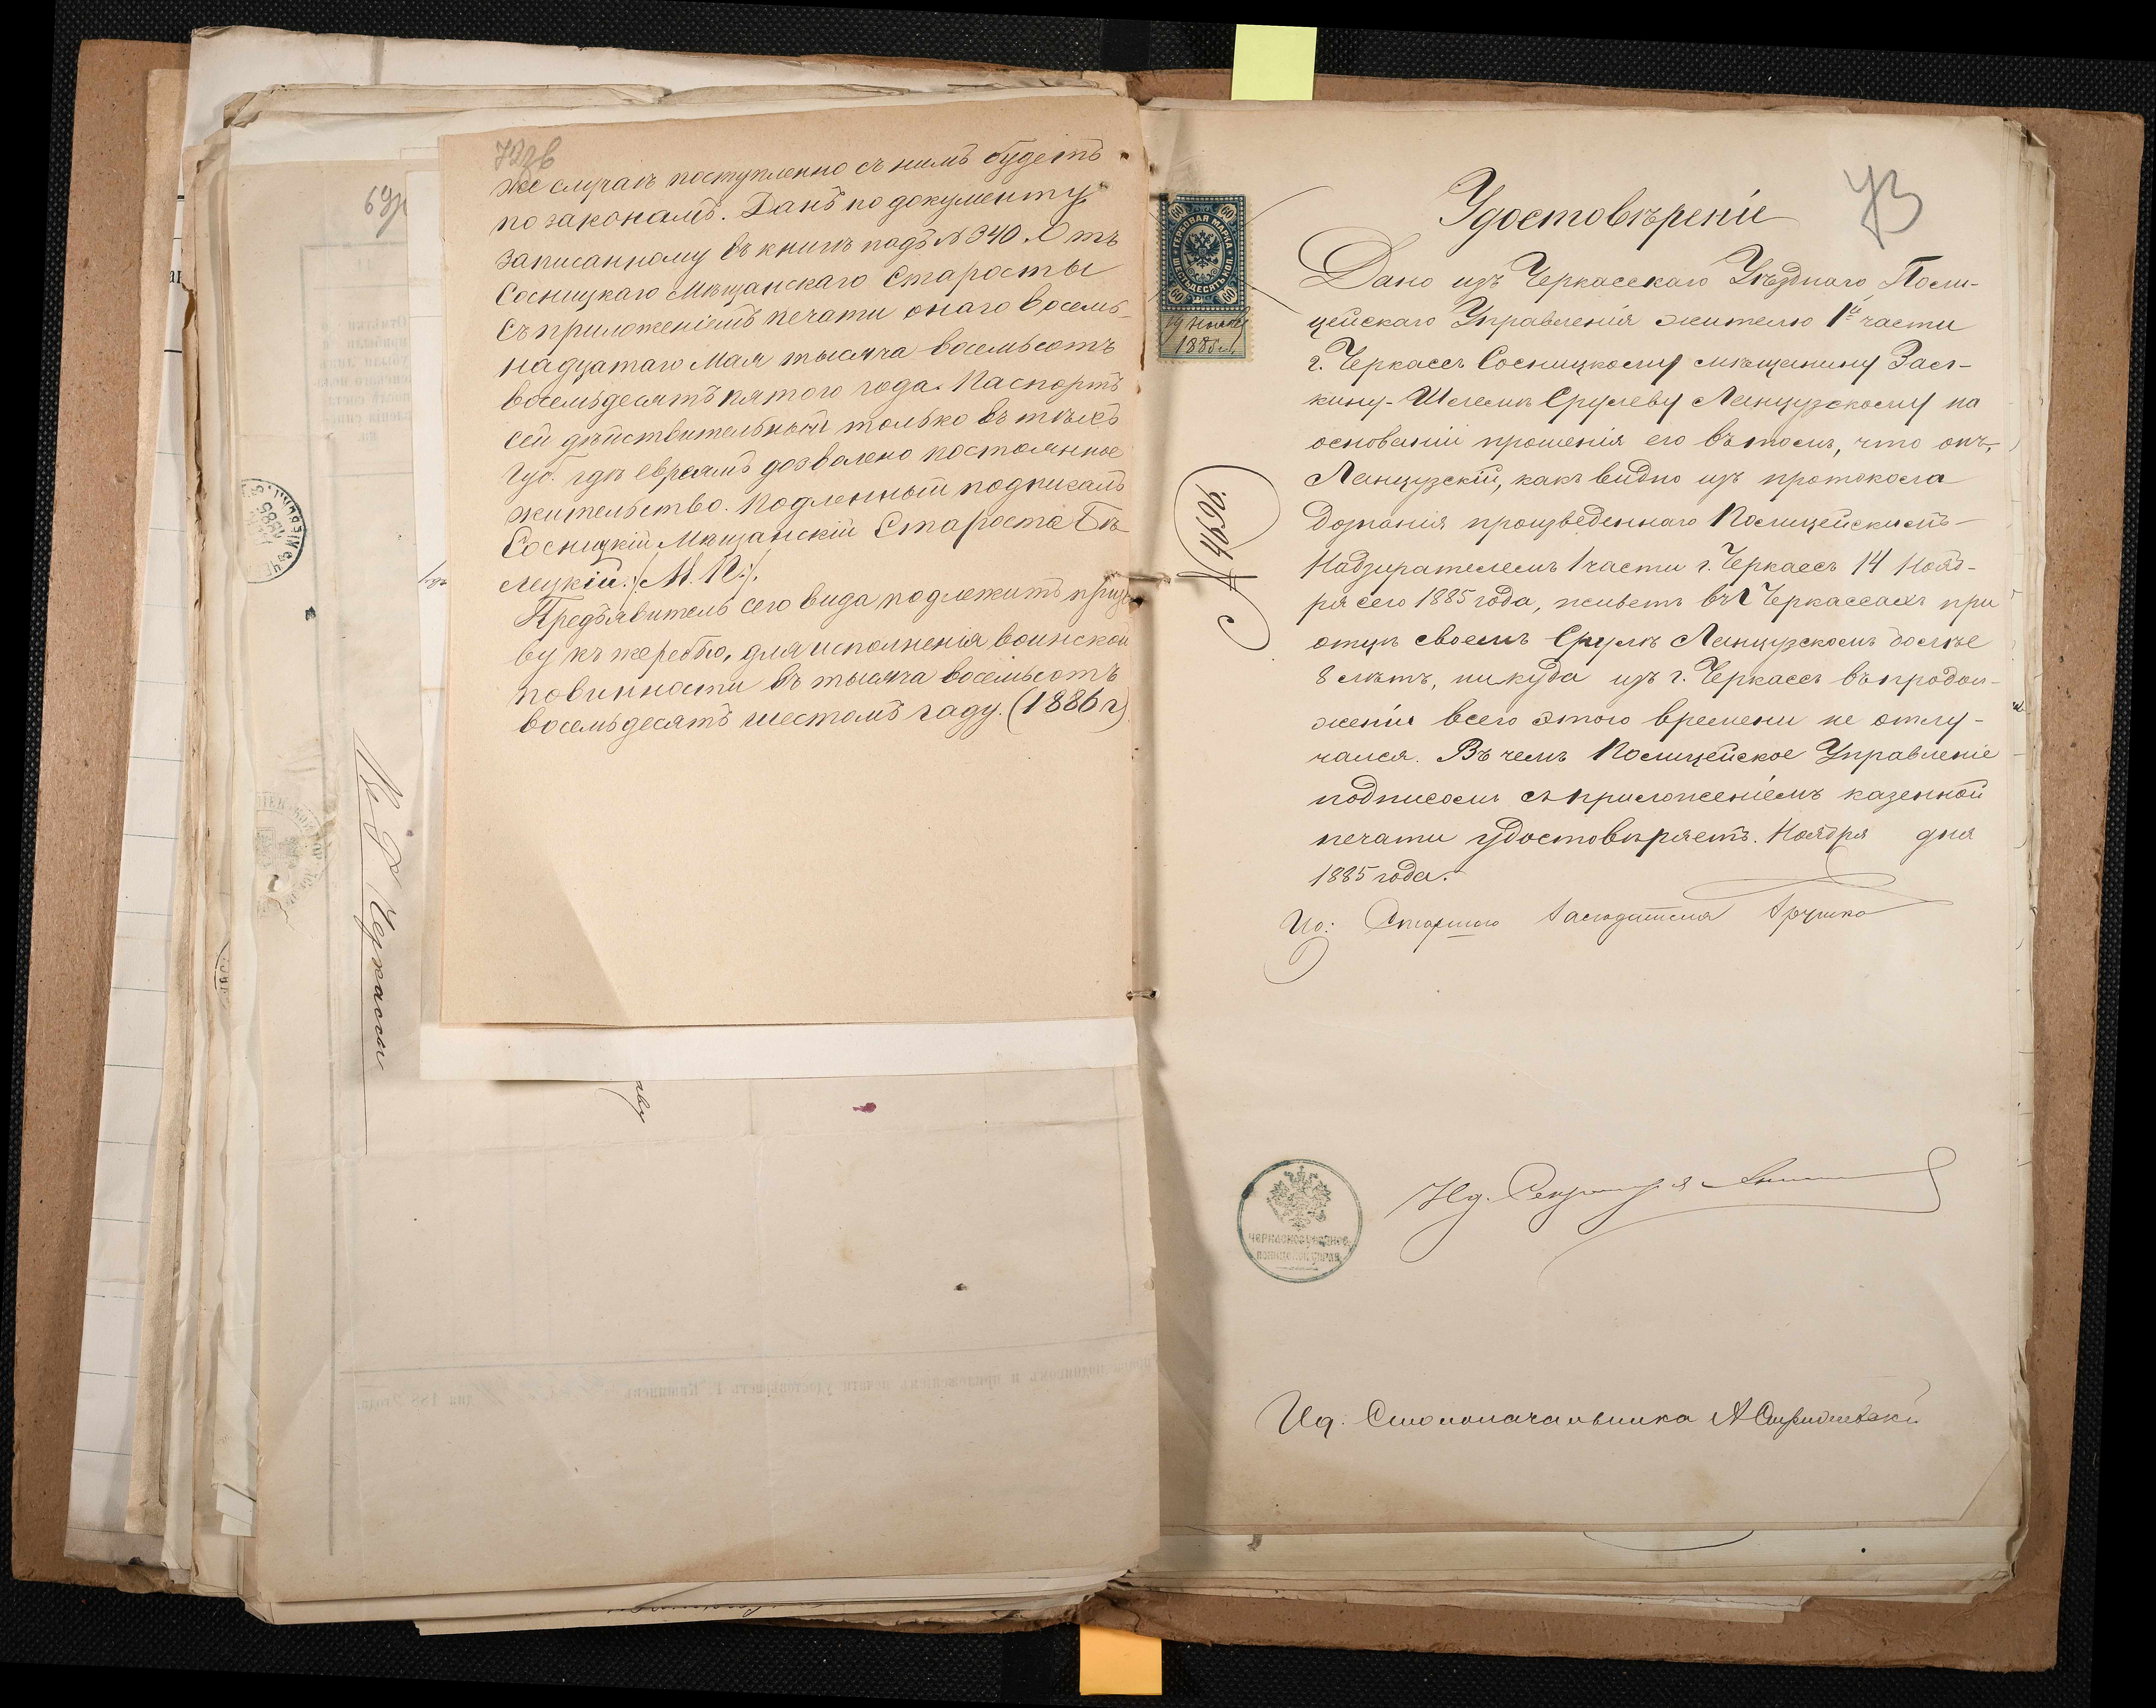 72об
же случаѣ поступленно съ нимъ будетъ
по законамъ. Данъ по документу
записанному въ книгѣ подъ №340. Отъ
Сосницкаго Мѣщанскаго Старосты
съ приложеніемъ печати онаго восемь-
надцатаго Мая тысяча восемьсотъ
восемьдесятъ пятого года. Паспортъ
сей дѣйствительный только въ тѣхъ
Губ. гдѣ евреямъ дозволено постоянное
жительство. Подленный подписалъ
Сосницкій Мѣщанскій Староста Бѣ-
лецкій. /М.П./.
Предъявитель сего вида подлежитъ призы
ву къ жеребью, для исполненія воинской
повинности въ тысяча восемьсотъ
восемьдесятъ шестомъ гаду. (1886 г)
69
Черкассы
73
Удостовѣреніе
Дано изъ Черкасскаго Уѣзднаго Поли-
цейскаго Управленія жителю 1й части
г. Черкассъ Сосницкому мѣщанину Зась-
кину-Шлемѣ Срулеву Ланцузскому на
основаніи прошенія его въ томъ, что онъ,
Ланцузскій, какъ видно изъ протокола
дознанія произведеннаго Полицейскимъ
Надзирателемъ 1 части г. Черкассъ 14 Нояб-
ря сего 1885 года, живетъ въ г Черкассахъ при
отцѣ своемъ Срулѣ Ланцузскомъ болѣе
8 лѣтъ, никуда изъ г. Черкассъ въ продол-
женіи всего этого времени не отлу-
чался. Въ чемъ Полицейское Управленіе
подписомъ съ приложеніемъ казенной
печати удостовѣряетъ. Ноября дня
1885 года.
Ио: Старшаго Засѣдателя
№ 4696.
ГЕРБОВАЯ МАРКА
ШЕСТЬДЕСЯТЪ КОП.
60 60
60 60
19 Ноября
1885 г.
ЧЕРКАССКОЕ УѢЗДНОЕ
ПОЛИЦЕЙСК. УПРАВ.
Ид. Секретаря
Ид. Столоначальника